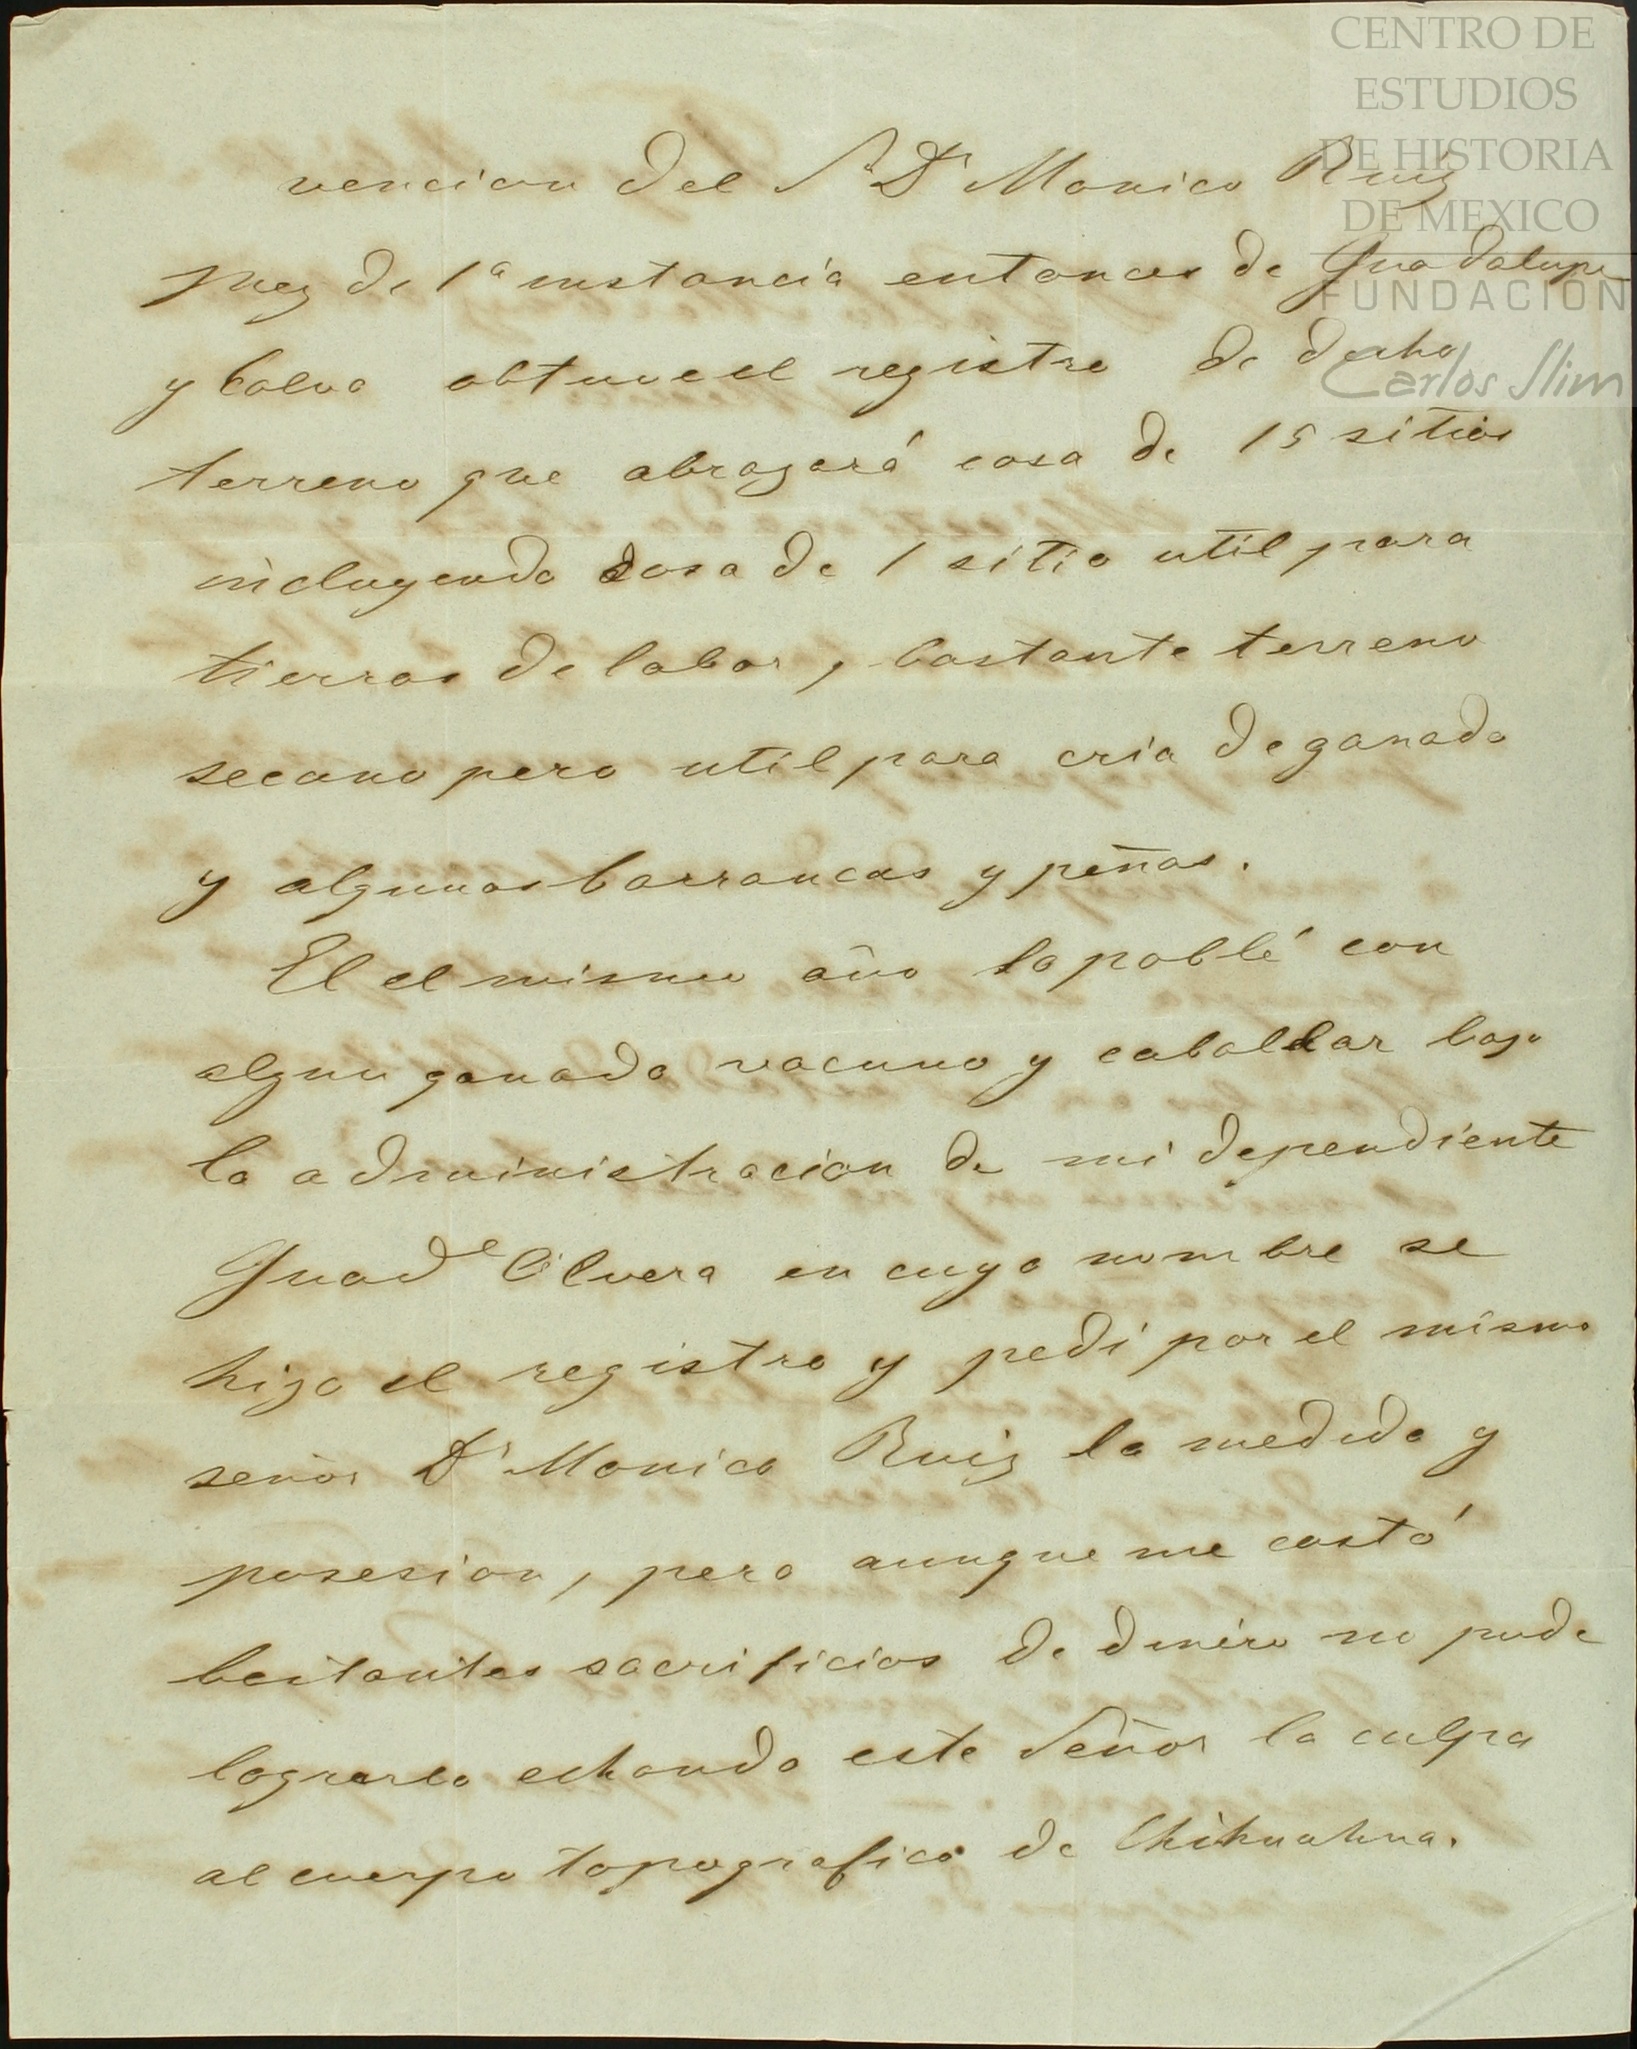 CENTRO DE
ESTUDIOS
DE HISTORIA
DE MEXICO
FUNDACIÓN
Carlos Slim
vencion del Sr Dn Monico Ruiz
Juez de 1a instancia entonces de Guadalupe
y Calvo obtuve el registro de dicho
terreno que abrazará cosa de 15 sitios
incluyendo cosa de 1 sitio util para
tierras de labor, bastante terreno
secano pero util para cria de ganado
y algunas barrancas y peñas.
El el mismo año lo poblé con
algun ganado vacuno y caballar bajo
la administracion de mi dependiente
Guade Olvera en cuyo nombre se
hizo el registro y pedi por el mismo
señor Dn Monico Ruiz la medida y
posesion, pero aunque me costó
bastantes sacrificios de dinero no pude
lograrlo echando este Señor la culpa
al cuerpo topografico de Chihuahua.